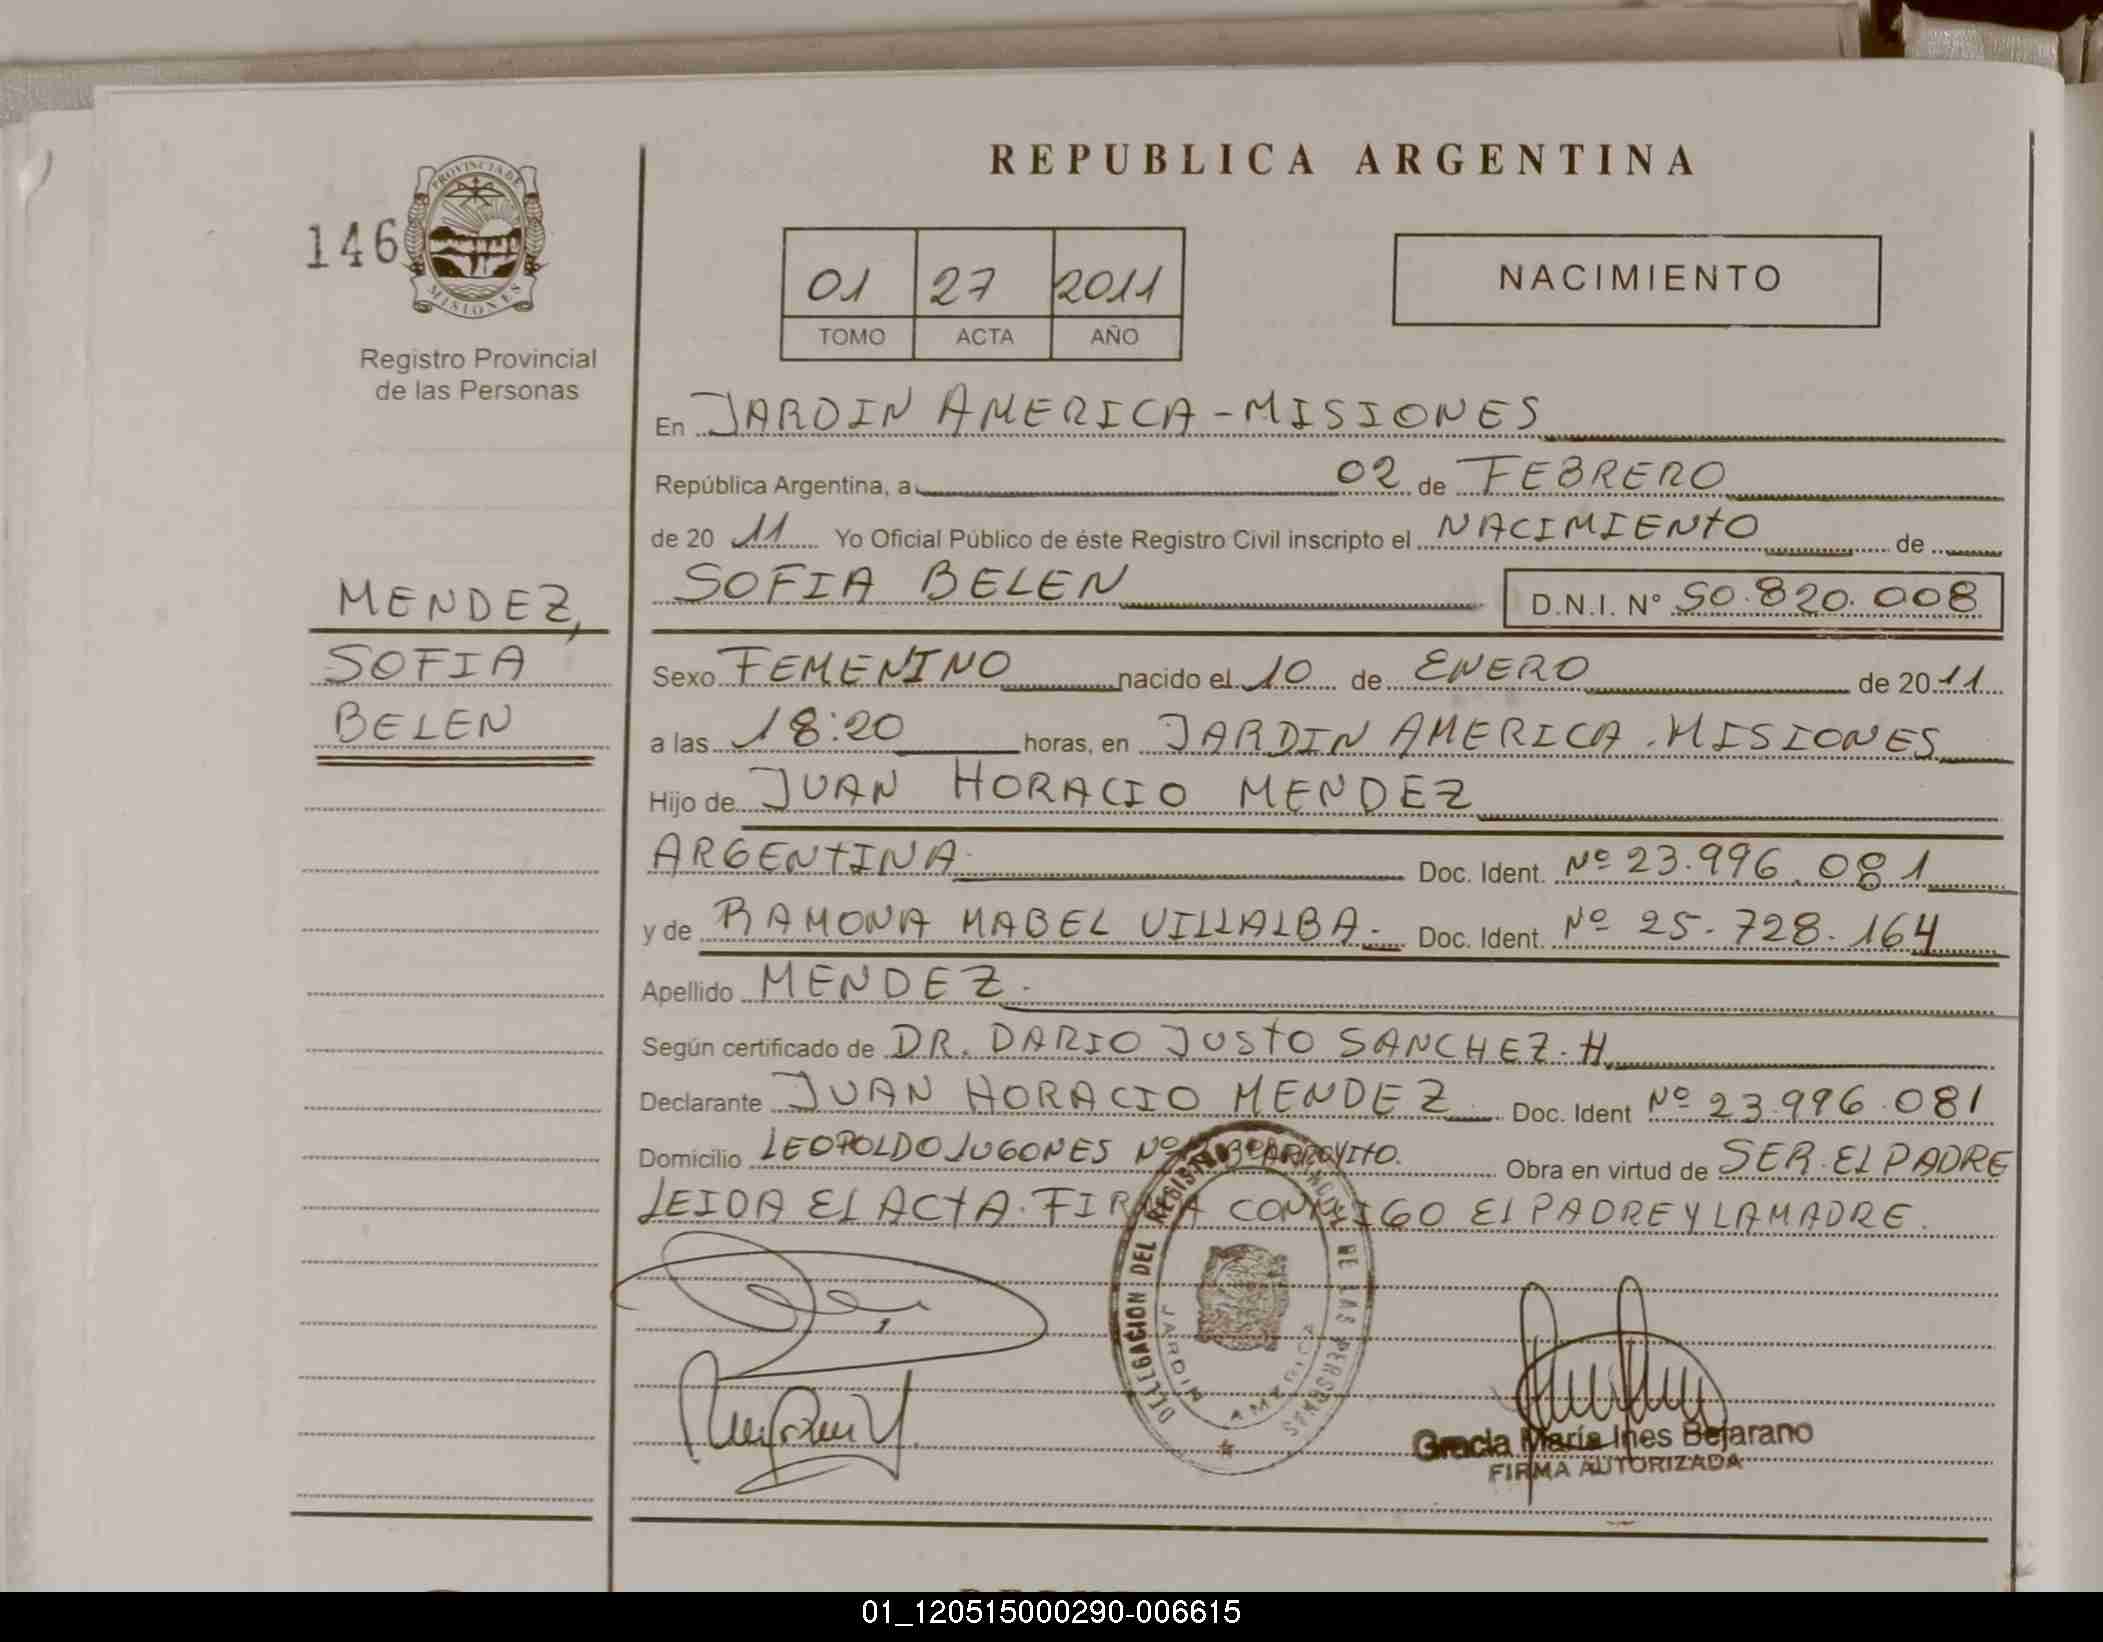 REPUBLICA ARGENTINA
146
PROVINCIA DE
MISIONES
Registro Provincial
de las Personas
01 27 2011
TOMO ACTA AÑO
NACIMIENTO
En JARDIN AMERICA - MISIONES
República Argentina, a 02 de FEBRERO
de 20 11 Yo Oficial Público de éste Registro Civil inscripto el NACIMIENTO de
SOFIA BELEN D.N.I. N° 50.820.008
MENDEZ,
SOFIA
BELEN
Sexo FEMENINO nacido el 10 de ENERO de 20 11
a las 18:20 horas, en JARDIN AMERICA . MISIONES
Hijo de JUAN HORACIO MENDEZ
ARGENTINA Doc. Ident. Nº 23.996.081
y de RAMONA MABEL VILLALBA.- Doc. Ident. Nº 25.728.164
Apellido MENDEZ.
Según certificado de DR. DARIO JUSTO SANCHEZ. H
Declarante JUAN HORACIO MENDEZ Doc. Ident Nº 23.996.081
Domicilio LEOPOLDO LUGONES Nº Bº ARROYITO. Obra en virtud de SER. EL PADRE
LEIDA EL ACTA. FIRMA CONMIGO EL PADRE Y LA MADRE.
DELEGACION DEL REGISTRO PROVINCIAL DE LAS PERSONAS
JARDIN AMERICA
Gracia María Ines Bejarano
FIRMA AUTORIZADA
01_120515000290-006615